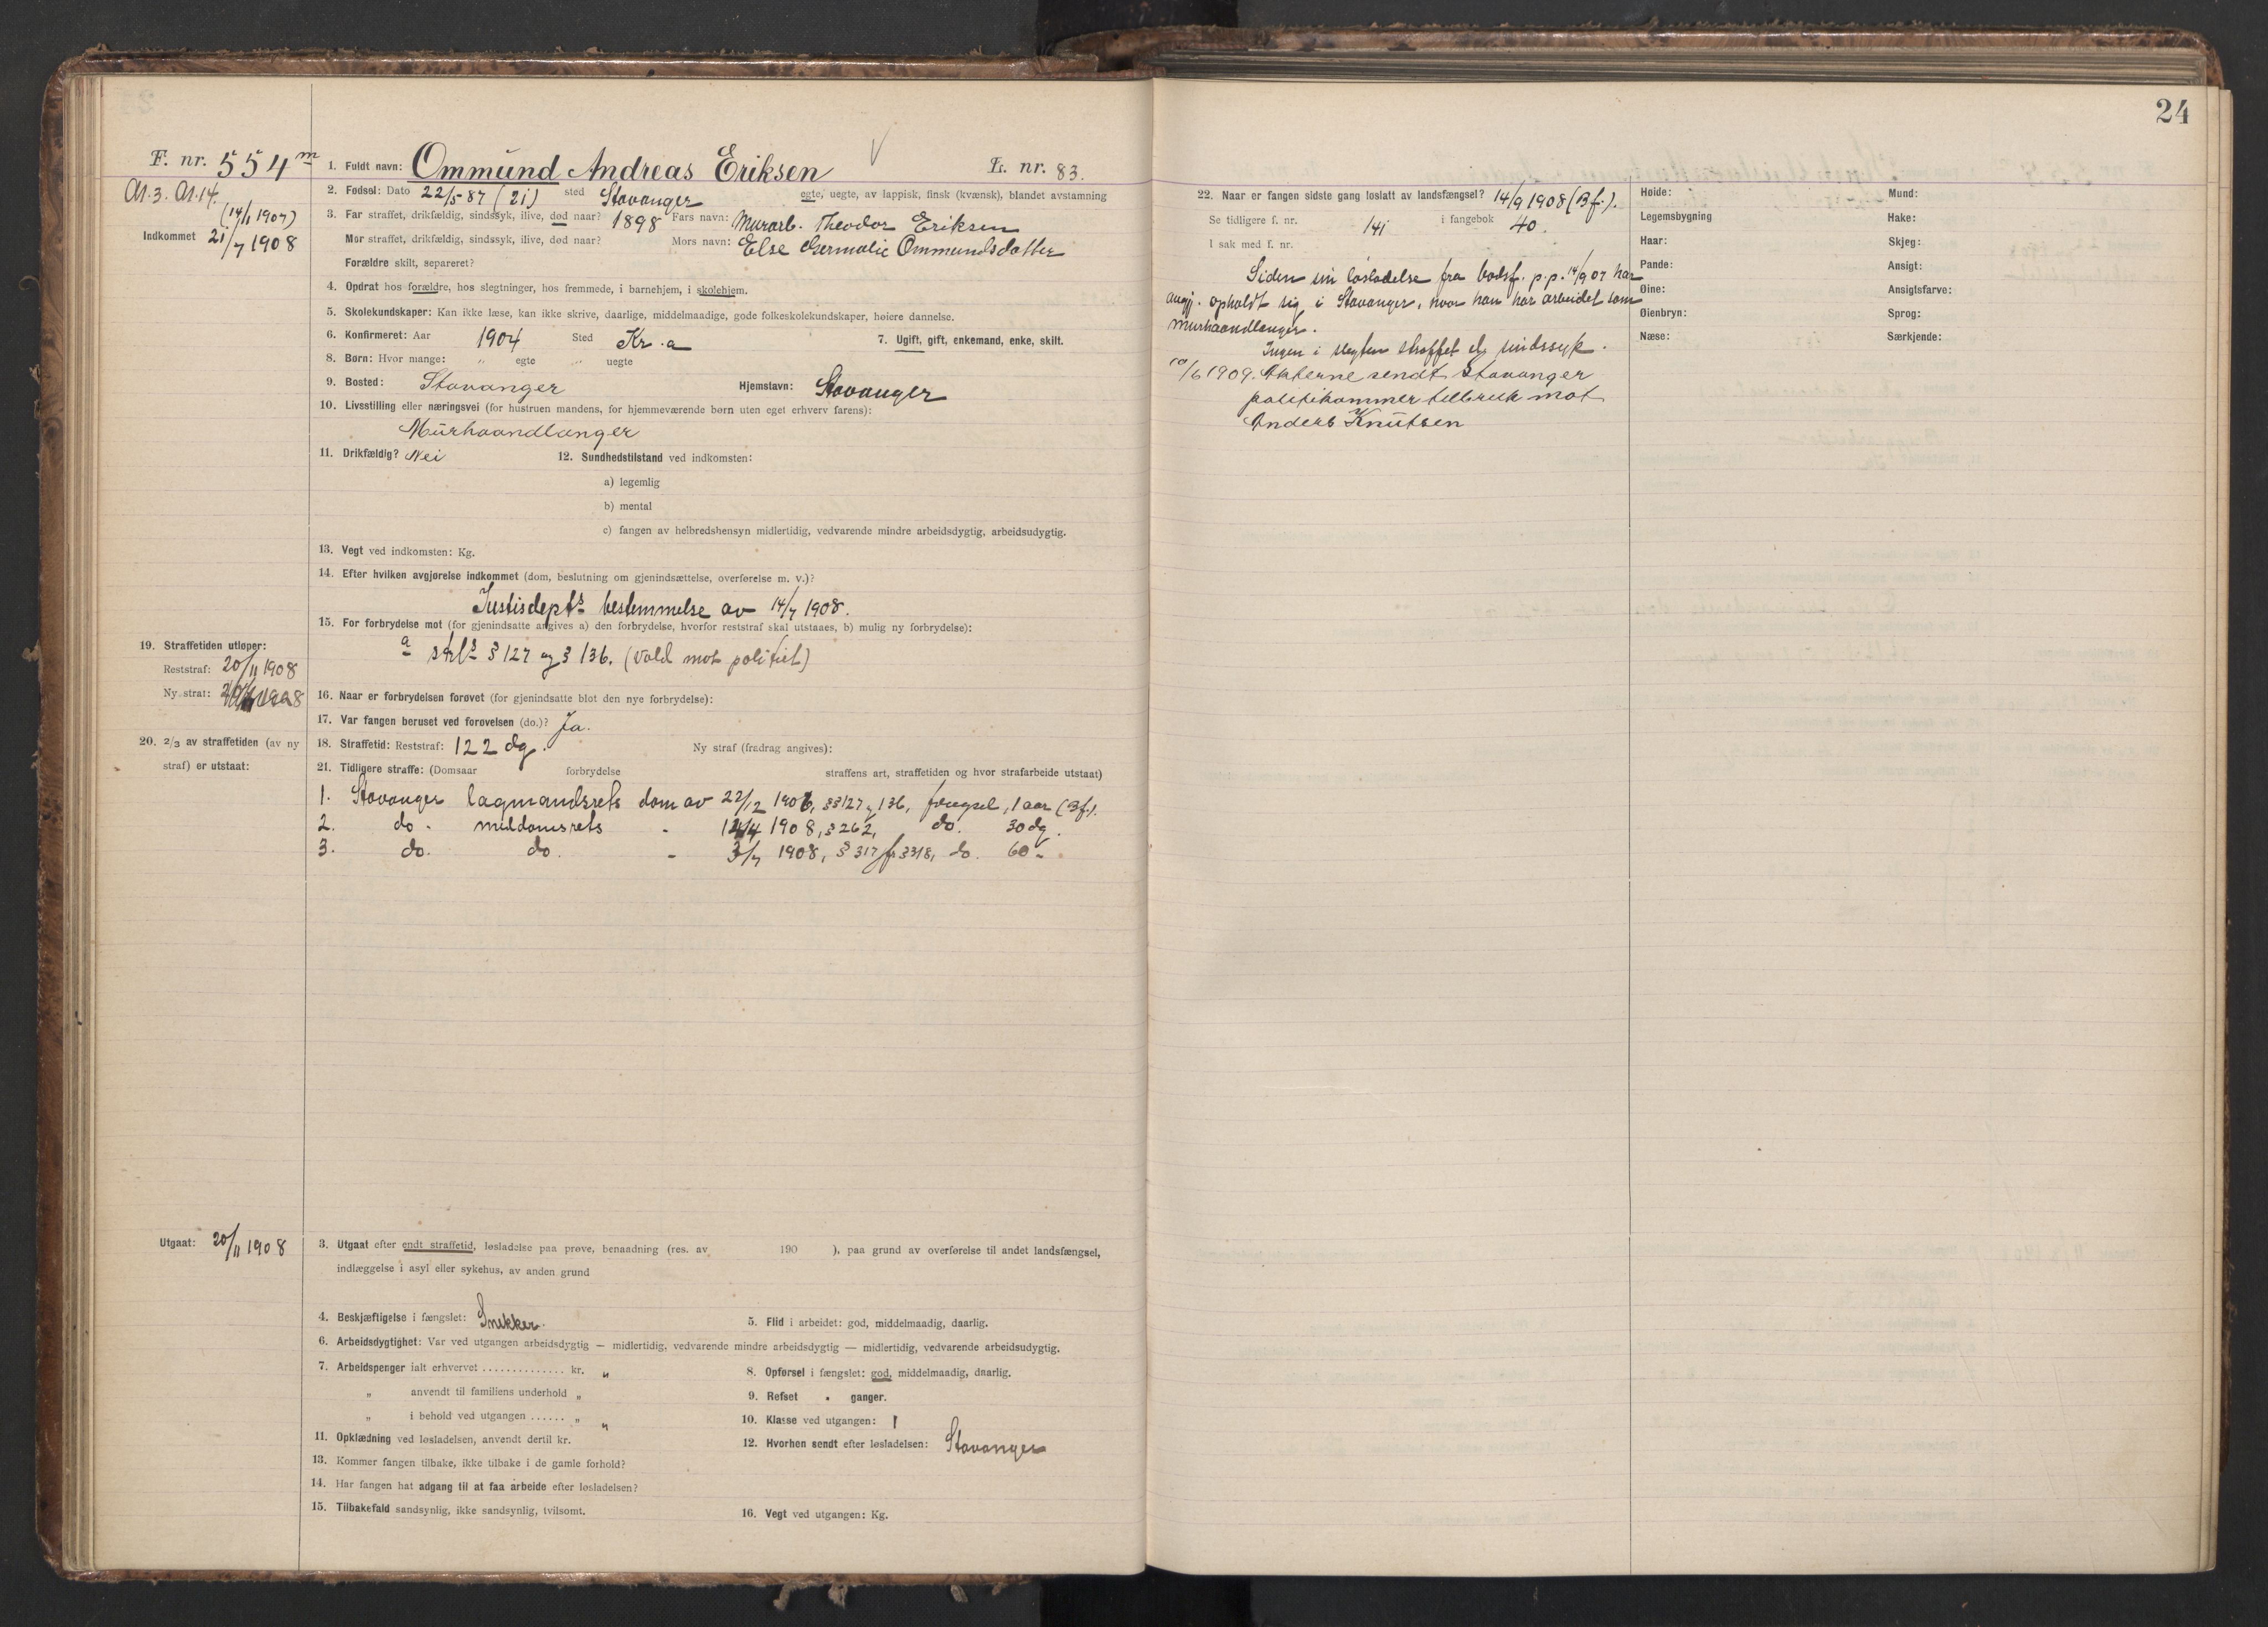 F. nr. 554 m
A1.3. A1.14.
(14/1 1907)
Indkommet 21/7 1908
1. Fuldt navn: Ommund Andreas Eriksen L. nr. 83.
2. Fødsel: Dato 22/5-87 (21) sted Stavanger egte, uegte, av lappisk, finsk (kvænsk), blandet avstamning
3. Far straffet, drikfældig, sindssyk, ilive, død naar? 1898 Fars navn: Murarb. Theodor Eriksen
Mor straffet, drikfældig, sindssyk, ilive, død naar? Mors navn: Else Germalie Ommundsdatter
Forældre skilt, separeret?
4. Opdrat hos forældre, hos slegtninger, hos fremmede, i barnehjem, i skolehjem.
5. Skolekundskaper: Kan ikke læse, kan ikke skrive, daarlige, middelmaadige, gode folkeskolekundskaper, høiere dannelse.
6. Konfirmeret: Aar 1904 Sted Kr.a 7. Ugift, gift, enkemand, enke, skilt.
8. Børn: Hvor mange: " egte " uegte
9. Bosted: Stavanger Hjemstavn: Stavanger
10. Livsstilling eller næringsvei (for hustruen mandens, for hjemmeværende børn uten eget erhverv farens):
Murhaandlanger
11. Drikfældig? Nei 12. Sundhedstilstand ved indkomsten:
a) legemlig
b) mental
c) fangen av helbredshensyn midlertidig, vedvarende mindre arbeidsdygtig, arbeidsudygtig.
13. Vegt ved indkomsten: Kg.
14. Efter hvilken avgjørelse indkommet (dom, beslutning om gjenindsættelse, overførelse m. v.)?
Justisdepts bestemmelse av 14/7 1908.
15. For forbrydelse mot (for gjenindsatte angives a) den forbrydelse, hvorfor reststraf skal utstaaes, b) mulig ny forbrydelse):
a strls § 127 og § 136. (vold mot politiet)
19. Straffetiden utløper:
Reststraf: 20/11 1908
Ny straf:
16. Naar er forbrydelsen forøvet (for gjenindsatte blot den nye forbrydelse):
17. Var fangen beruset ved forøvelsen (do.)? Ja.
20. 2/3 av straffetiden (av ny straf) er utstaat:
18. Straffetid: Reststraf: 122 dg. Ny straf (fradrag angives):
21. Tidligere straffe: (Domsaar forbrydelse straffens art, straffetiden og hvor strafarbeide utstaat)
1. Stavanger lagmandsrets dom av 22/12 1906, §§ 127 og 136, fængsel, 1 aar (Bf.).
2. do. meddomsrets - 14/4 1908, § 262, do. 30 dg.
3. do. do. - 3/7 1908, § 317 jfr § 318, do. 60 -.
Utgaat: 20/11 1908
3. Utgaat efter endt straffetid, løsladelse paa prøve, benaadning (res. av 190 ), paa grund av overførelse til andet landsfængsel,
indlæggelse i asyl eller sykehus, av anden grund
4. Beskjæftigelse i fængslet: Snekker. 5. Flid i arbeidet: god, middelmaadig, daarlig.
6. Arbeidsdygtighet: Var ved utgangen arbeidsdygtig — midlertidig, vedvarende mindre arbeidsdygtig — midlertidig, vedvarende arbeidsudygtig.
7. Arbeidspenger ialt erhvervet .............. kr. " 8. Opførsel i fængslet: god, middelmaadig, daarlig.
" anvendt til familiens underhold " 9. Refset " ganger.
" i behold ved utgangen ...... " " 10. Klasse ved utgangen: I
11. Opklædning ved løsladelsen, anvendt dertil kr. 12. Hvorhen sendt efter løsladelsen: Stavanger
13. Kommer fangen tilbake, ikke tilbake i de gamle forhold?
14. Har fangen hat adgang til at faa arbeide efter løsladelsen?
15. Tilbakefald sandsynlig, ikke sandsynlig, tvilsomt. 16. Vegt ved utgangen: Kg.
24
22. Naar er fangen sidste gang løslatt av landsfængsel? 14/9 1908 (Bf.).
Se tidligere f. nr. 141 i fangebok 40.
I sak med f. nr.
Siden sin løsladelse fra bodsf. p.p. 14/9 07 har
angjj. opholdt sig i Stavanger, hvor han har arbeidet som
murhaandlanger.
Ingen i slegten straffet el. sindssyk.
10/6 1909. Akterne sendt Stavanger
politikammer til bruk mot
Anders Knutsen
Høide: Mund:
Legemsbygning Hake:
Haar: Skjeg:
Pande: Ansigt:
Øine: Ansigtsfarve:
Øienbryn: Sprog:
Næse: Særkjende: